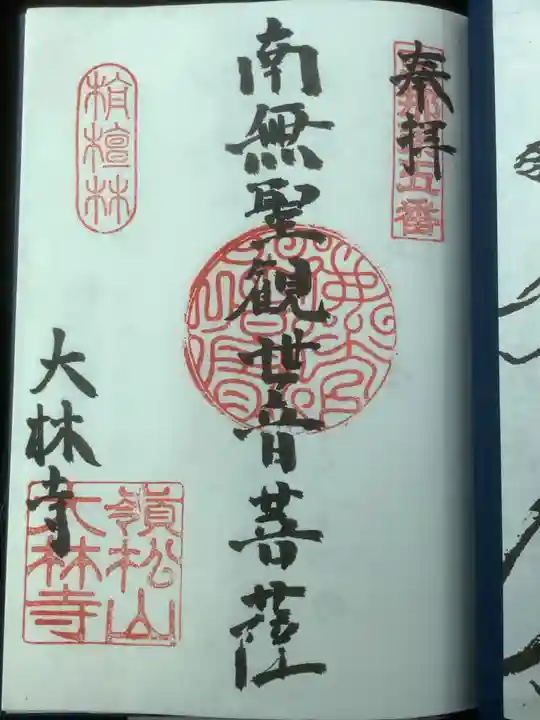 奉拝
五番
南無聖観世音菩薩
栴檀林
大林寺
嶺松山
大林寺